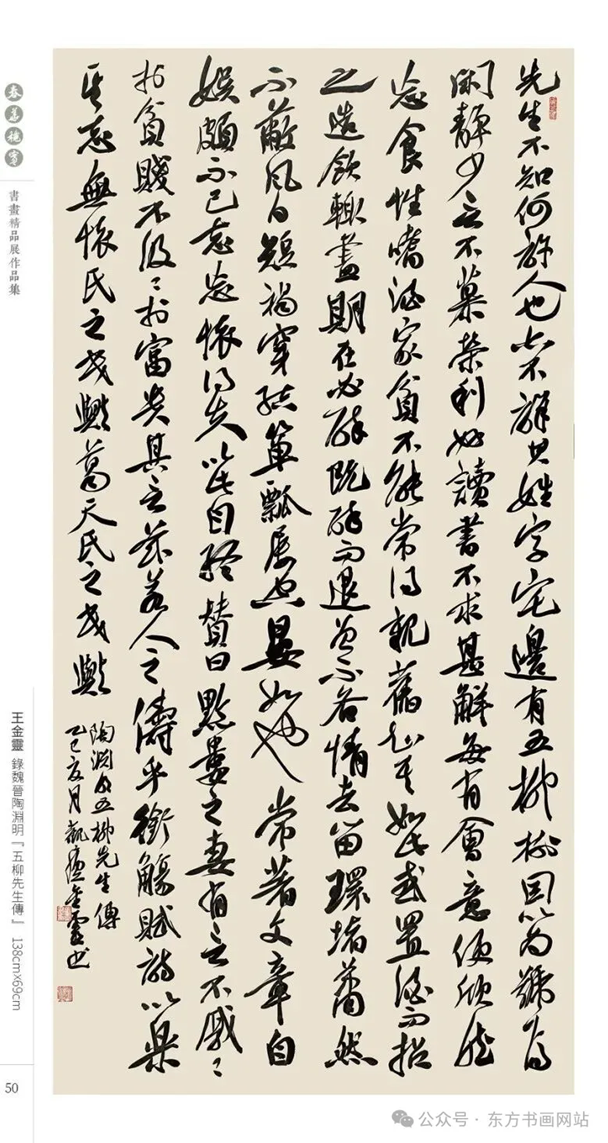 先生不知何許人也亦不詳其姓字宅邊有五柳樹因以為號焉
閑靜少言不慕榮利好讀書不求甚解每有會意便欣然
忘食性嗜酒家貧不能常得親舊知其如此或置酒而招
之造飲輒盡期在必醉既醉而退曾不吝情去留環堵蕭然
不蔽風日短褐穿結簞瓢屢空晏如也常著文章自
娛頗示己志忘懷得失以此自終贊曰黔婁之妻有言不戚〻
於貧賤不汲〻於富貴其言茲若人之儔乎銜觴賦詩以樂
其志無懷氏之民歟葛天氏之民歟
陶淵明五柳先生傳
乙巳夏月金靈書
春華穐實
書畫精品展作品集
王金靈 錄魏晉陶淵明『五柳先生傳』 138cm×69cm
50
公众号 · 东方书画网站